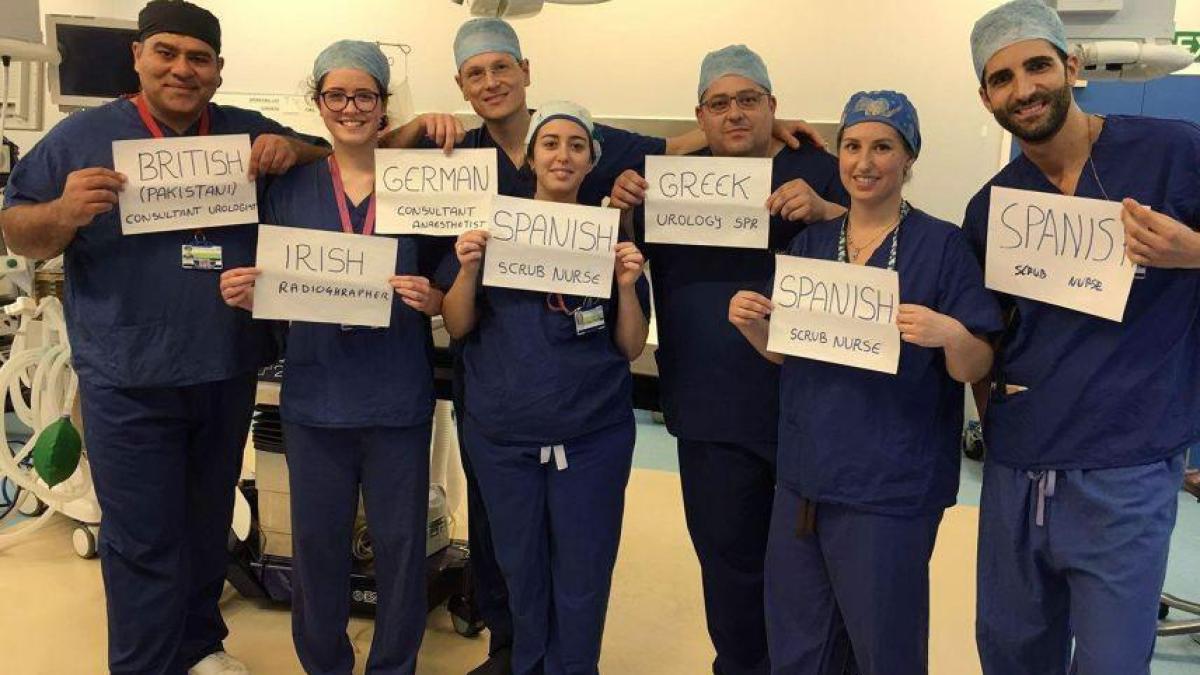 BRITISH
(PAKISTANI)
CONSULTANT UROLOGIST
IRISH
RADIOGHRAPHER
GERMAN
CONSULTANT
ANAESTHETIST
SPANISH
SCRUB NURSE
GREEK
UROLOGY SPR
SPANISH
SCRUB NURSE
SPANIS
SCRUB NURSE
EX